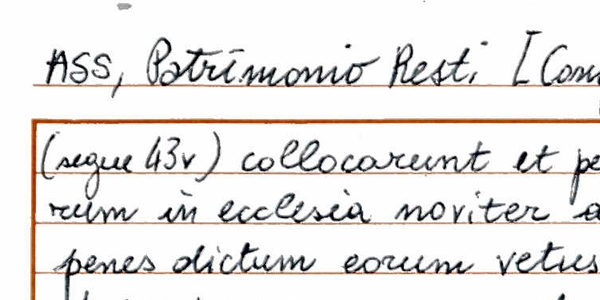 ASS, Patrimonio Resti [Com
(segue 43v) collocarunt et pe
rum in ecclesia noviter a
penes dictum eorum vetus